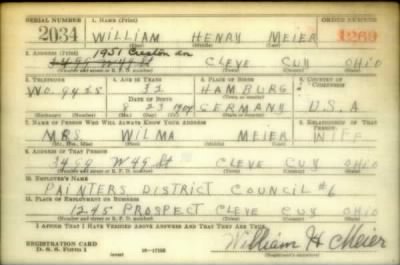 SERIAL NUMBER 1. NAME (Print) ORDER NUMBER
2034 WILLIAM HENRY MEIER 1269
(First) (Middle) (Last)
2. ADDRESS (Print) 1951 Creston
3499 W 49 St CLEVE CUY OHIO
(Number and street or R. F. D. number) (Town) (County) (State)
3. TELEPHONE 4. AGE IN YEARS 5. PLACE OF BIRTH 6. COUNTRY OF CITIZENSHIP
WO. 9458 32 HAMBURG
DATE OF BIRTH (Town or county)
8 23 1908 GERMANY U.S.A
(Exchange) (Number) (Mo.) (Day) (Yr.) (State or country)
7. NAME OF PERSON WHO WILL ALWAYS KNOW YOUR ADDRESS 8. RELATIONSHIP OF THAT PERSON
MRS. WILMA MEIER WIFE
(Mr., Mrs., Miss) (First) (Middle) (Last)
9. ADDRESS OF THAT PERSON
3499 W 49 St CLEVE CUY OHIO
(Number and street or R. F. D. number) (Town) (County) (State)
10. EMPLOYER'S NAME
PAINTERS DISTRICT COUNCIL #6
11. PLACE OF EMPLOYMENT OR BUSINESS
1245 PROSPECT CLEVE CUY OHIO
(Number and street or R. F. D. number) (Town) (County) (State)
I AFFIRM THAT I HAVE VERIFIED ABOVE ANSWERS AND THAT THEY ARE TRUE.
REGISTRATION CARD
D. S. S. Form 1 (over) William H Meier
(Registrant's signature)